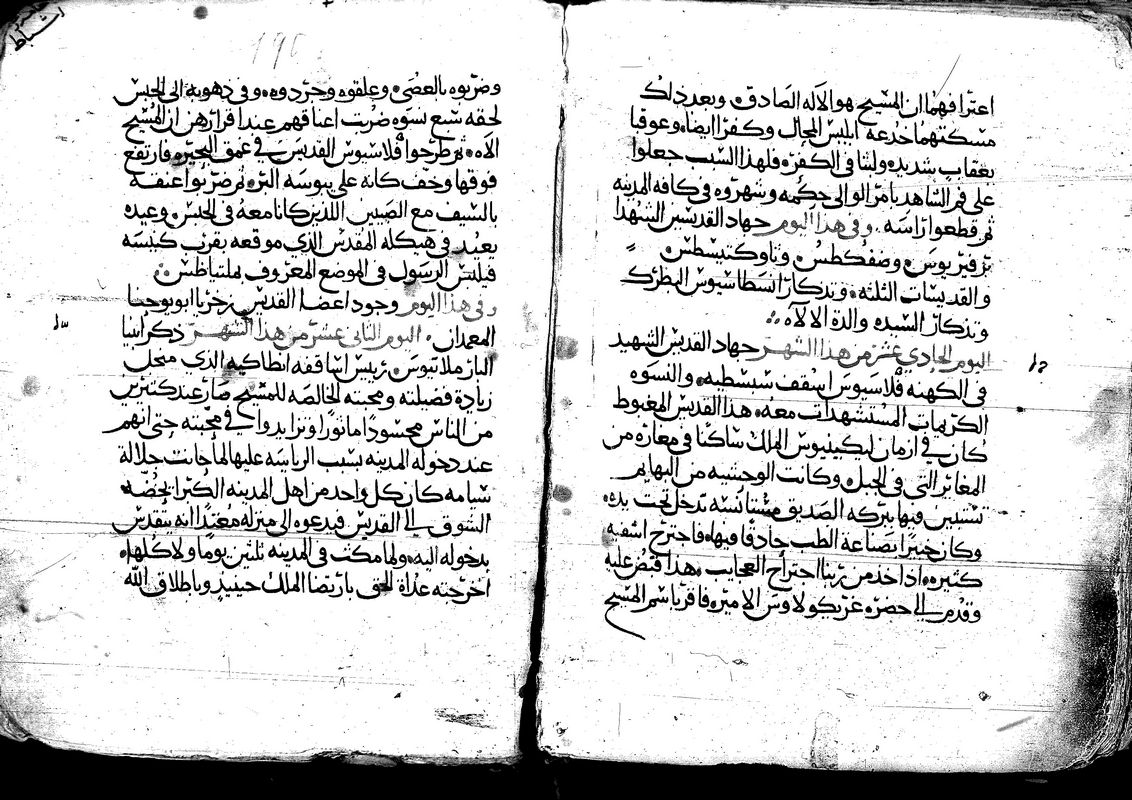 اعترافهما ان المسيح هو الاله الصادق وبعد ذلك
مسكتهما خدعة ابليس المحال وكفرا ايضا وعوقبا
بعقاب شديد ولبثا في الكفر فلهذا السبب جعلوا
على فم الشاهد بامر الوالي حكمه وشهروه في كافه المدينه
ثم قطعوا راسه وفي هذا اليوم جهاد القديسين الشهدا
برفيريوس
والقديسات الثلثه وتذكار انسطاسيوس البطرك
وتذكار السيده والدة الالاه
اليوم الحادي عشر من هذا الشهر جهاد القديس الشهيد
في الكهنه فلاسيوس اسقف سبسطيه والنسوه
الكريمات المستشهدات معه هذا القديس المغبوط
كان في ازمان ليكينيوس الملك ساكنا في مغاره من
المغائر التي في الجبل وكانت الوحشيه من البهايم
فيها ببركه الصديق مستانسه تدخل تحت يده
وكان خبيرا بصناعة الطب حاذقا فيها فاجترح اشفيه
كثيره اذ اخذ من ربنا اجتراح العجايب هذا قبض عليه
وقدم الي حضرة غريكولاوس الامير فاقر باسم المسيح
اشباط
196
وضربوه بالعصي وعلقوه وجردوه وفي ذهوبه الى الحبس
لحقه سبع نسوه ضربت اعناقهم عند اقرارهن ان المسيح
الاه ثم طرحوا فلاسيوس القديس في عمق البحيره فارتفع
فوقها وخف كانه على يبوسه البر ثم ضربوا عنقه
بالسيف مع الصبيين اللذين كانا معه في الحبس وعيده
يعيد في هيكله المقدس الذي موقعه بقرب كنيسة
فيلبس الرسول في الموضع المعروف بملتياظس
وفي هذا اليوم وجود اعضا القديس زخريا ابو يوحنا
المعمدان اليوم الثاني عشر من هذا الشهر ذكر ابينا
البار ملاتيوس رئيس اساقفه انطاكيه الذي من اجل
زيادة فضيلته ومحبته الخالصه للمسيح صار عند كثيرين
من الناس محسودا وتزايدوا في محبته حتى انهم
عند دخوله المدينه بسبب الرياسه عليها لما جات جلالة
شيامه كان كل واحد من اهل المدينه الكبرا يحضه
الشوق الي القديس فيدعوه الى منزله معتدا انه يتقدس
بدخوله اليه ولما مكث في المدينه ثلثين يوما ولا كلها
اخرجته عداة الحق بارتضا الملك حينيذ وباطلاق الله